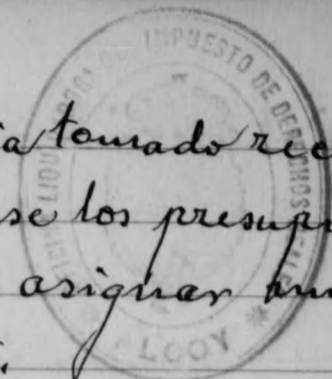 IMPUESTO DE DERECHOS REALES
ALCOY
tomado rec
se los presupu
asignar